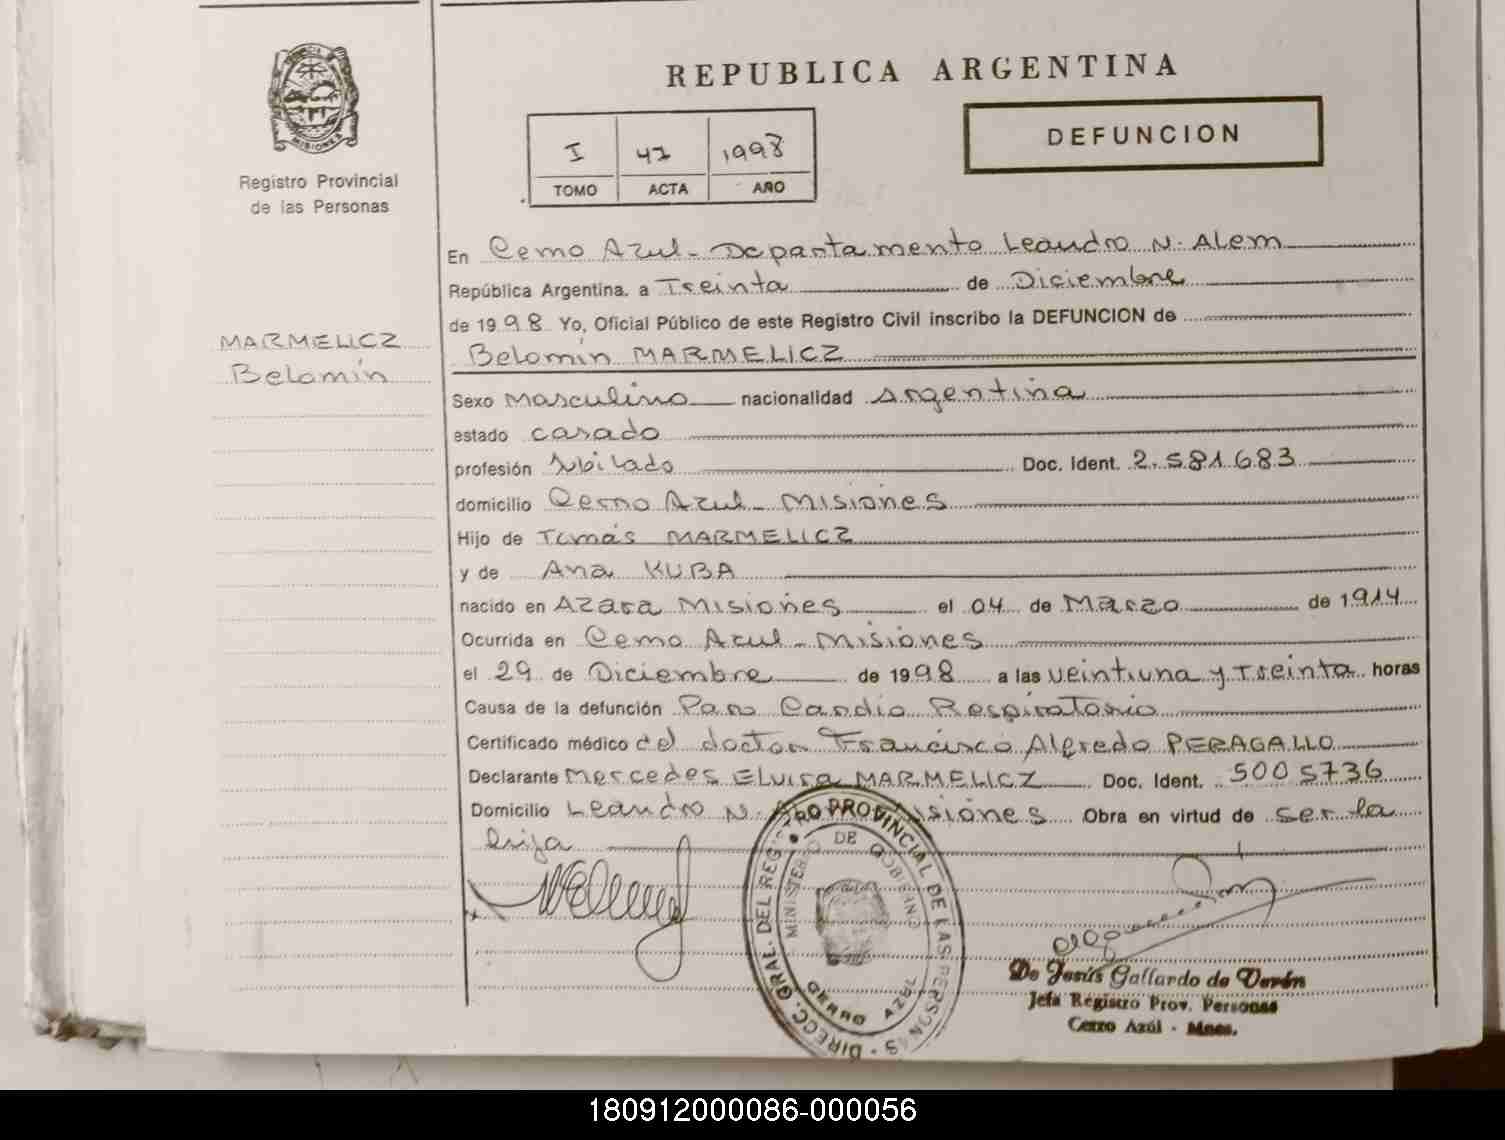 REPUBLICA ARGENTINA
MISIONES
Registro Provincial
de las Personas
I 41 1998
TOMO ACTA AÑO
DEFUNCION
MARMELICZ
Belarmín
En Cerro Azul - Departamento Leandro N. Alem
República Argentina, a Treinta de Diciembre
de 1998 Yo, Oficial Público de este Registro Civil inscribo la DEFUNCION de
Belarmín MARMELICZ
Sexo Masculino nacionalidad Argentina
estado casado
profesión Jubilado Doc. Ident. 2.581.683
domicilio Cerro Azul - Misiones
Hijo de Tomás MARMELICZ
y de Ana KUBA
nacido en Azara Misiones el 04 de Marzo de 1914
Ocurrida en Cerro Azul - Misiones
el 29 de Diciembre de 1998 a las veintiuna y Treinta horas
Causa de la defunción Paro Cardio Respiratorio
Certificado médico del doctor Francisco Alfredo PERAGALLO
Declarante Mercedes Elvira MARMELICZ Doc. Ident. 5005736
Domicilio Leandro N. Misiones Obra en virtud de ser la
hija
DIRECC. GRAL. DEL REGISTRO PROVINCIAL DE LAS PERSONAS
MINISTERIO DE GOBIERNO
CERRO AZUL
De Jesús Gallardo de Verón
Jefa Registro Prov. Personas
Cerro Azúl - Mnes.
180912000086-000056